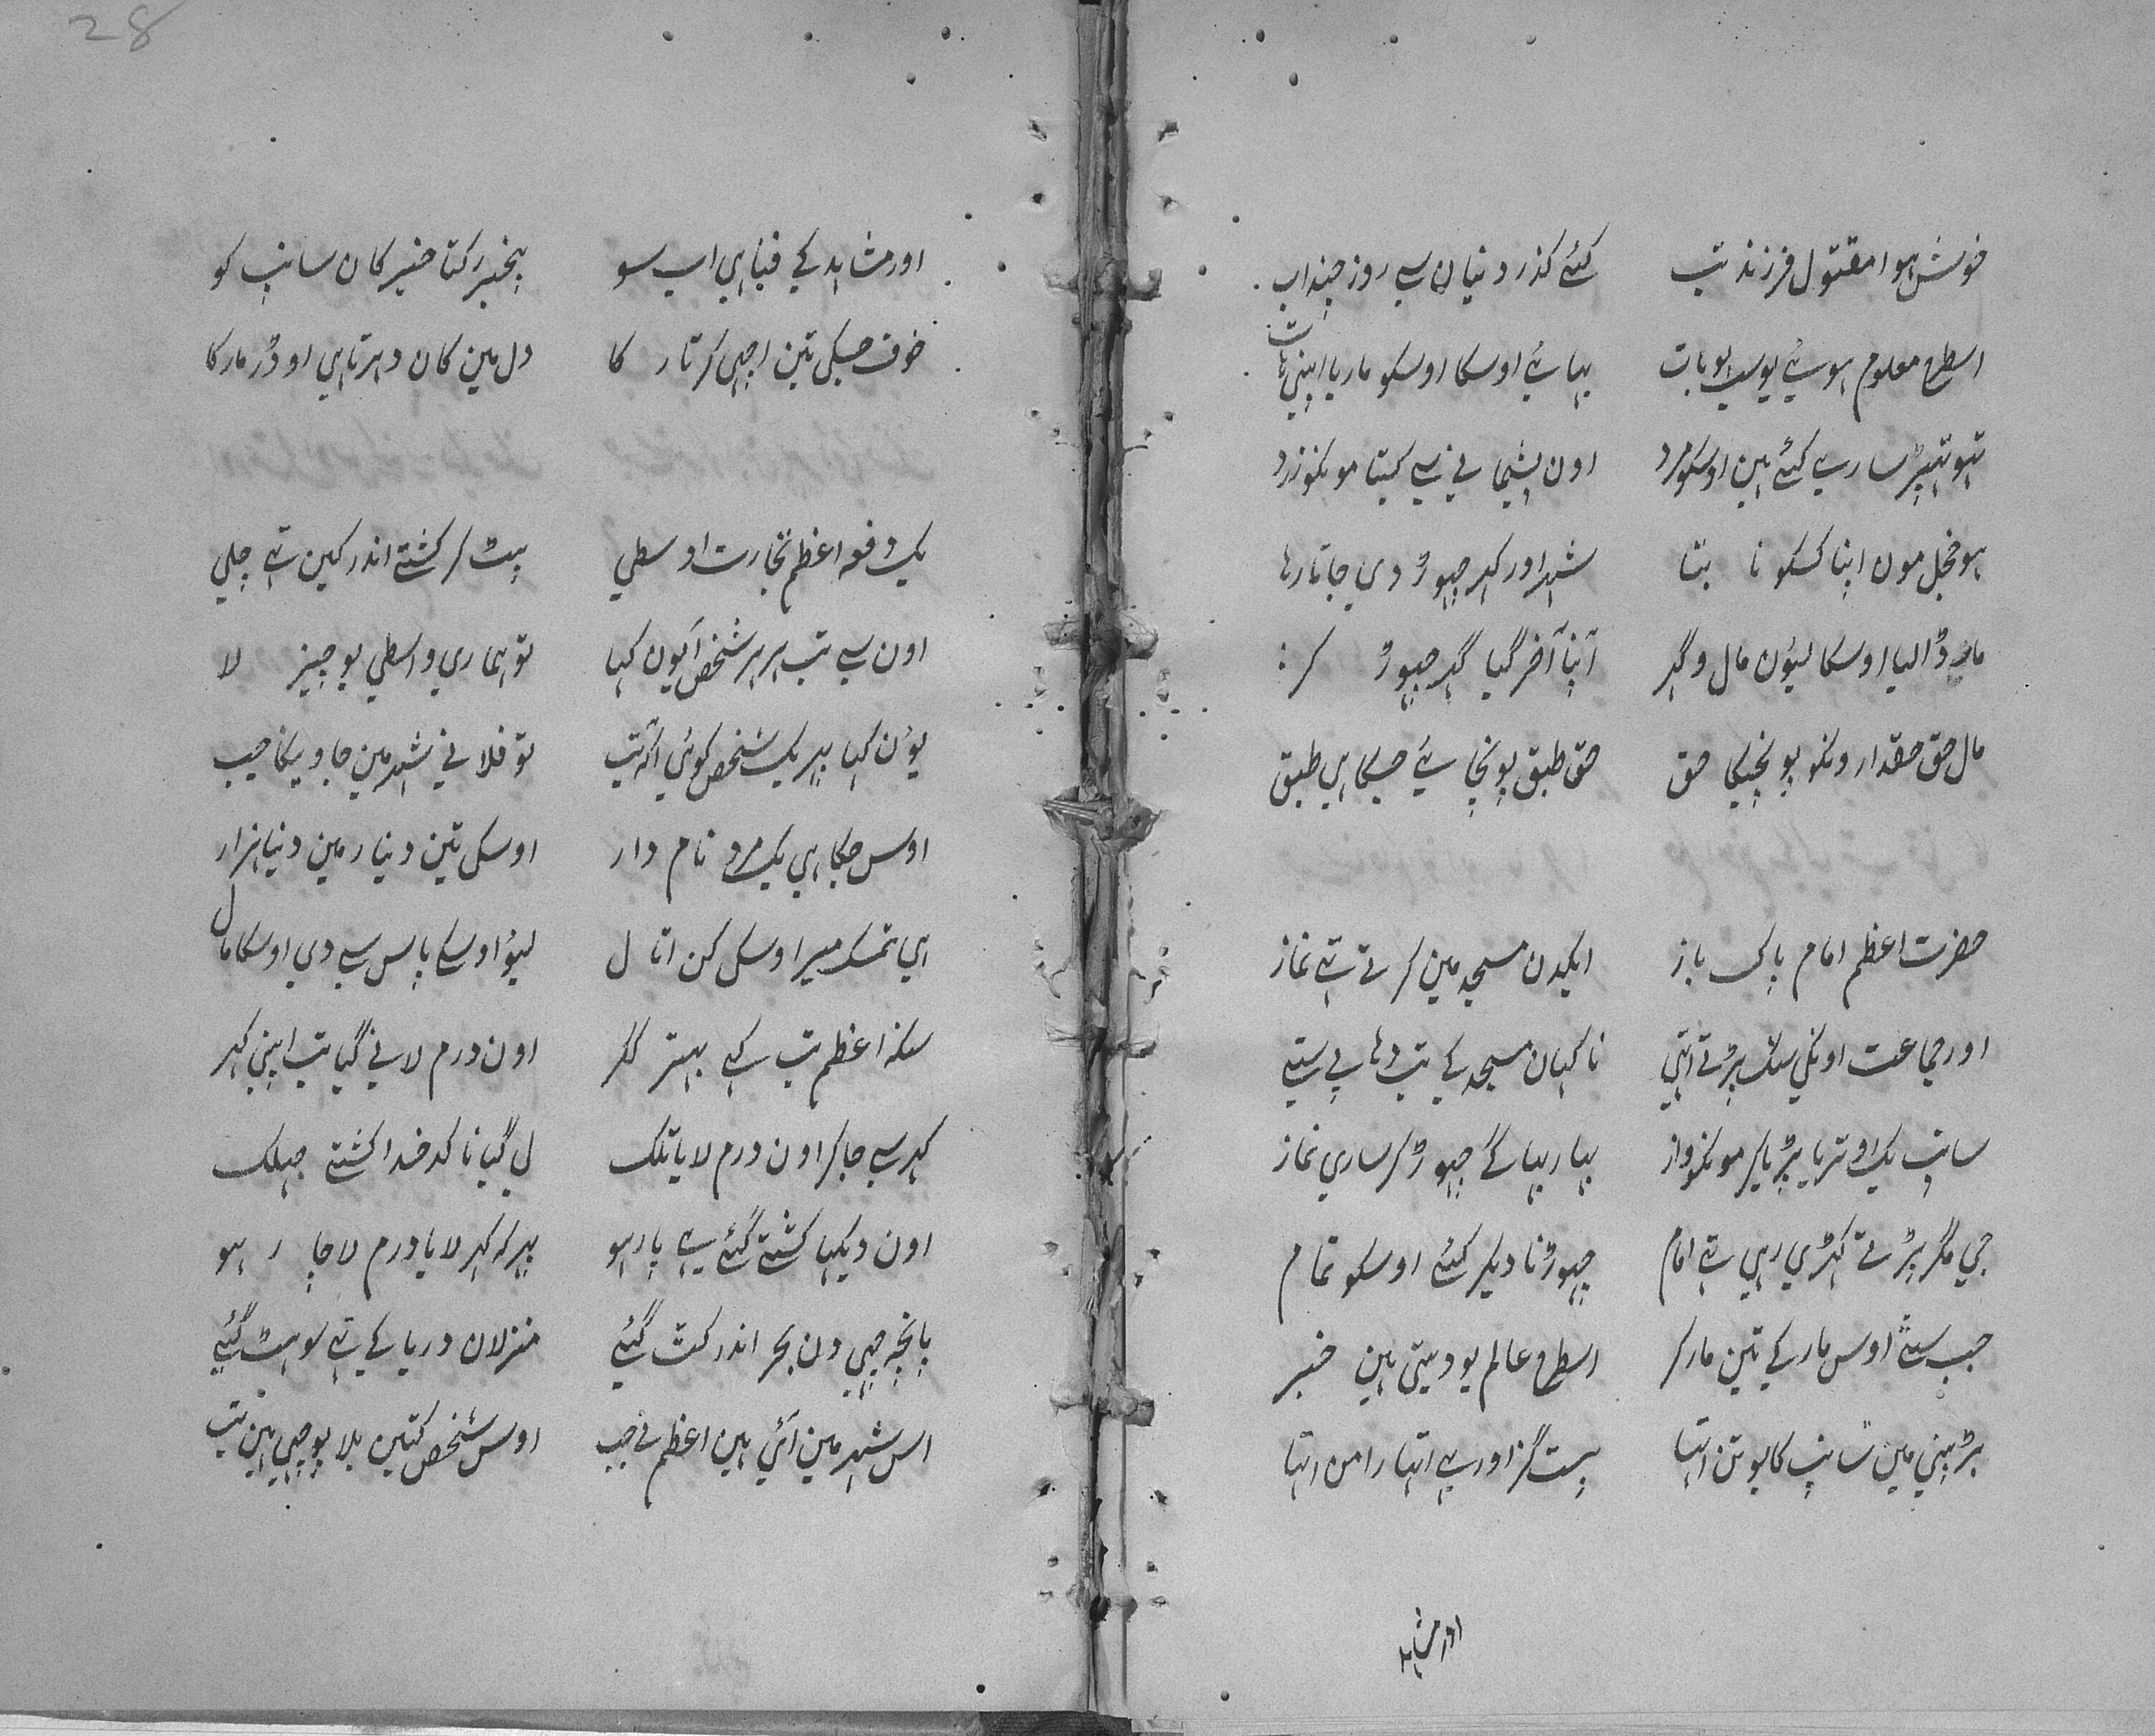 خوش ہوا مقتول فرزند تب کئے گذر دنیان سے روز چنداب
اسطرح معلوم ہوئے یو بات بہائے اوسکا اوسکو ماریا اپنی ہات
سارے کئے ہین اوسکو مرد اون پشیمانی سے کیتا مونکو زرد
ہو خجل مون اپنا کسکو نا بتا شہر اور کہر چہوڑ دی جاتا رہا
مار ڈالیا اوسکا لیؤن مال و گہر آپنا آخر گیا گہر چہوڑ کر
مال حق حقدار ونکو پونچیکا حق حق طبق پونچائے جسکا ہی طبق
حضرت اعظم امام پاک باز ایکدن مسجد مین کرتے تہے نماز
اور جماعت اونکی سنگ پڑتے اتہی ناگہان مسجد کے تب
سانپ یک اوتریا پڑیا کر بہار بہاگے چہوڑ کر ساری نماز
جی مگر پڑتے کہڑی رہی تہے امام چہوڑنا دیکر کئے اوسکو تمام
جب سٹے اوس مار کے تئین مار کر اسطرح عالم یو دیتی ہین خبر
سانپ کا یو تن اتہا بیست گز اور
اور مشاہد
28
اور مشاہد کے فنا ہی اب سو بیخبر رکتا خبر کان سانپ کو
خوف جسکی تئین اچہی کرتار کا دل مین کان دہرتا ہی او ڈر مار کا
یک دفعہ اعظم تجارت اوسطی بیٹ کر کشتے اندر کہین تہے چلی
اون سے تب ہر ہر شخص آیون کہا تو ہماری واسطی یو چیز لا
یون کہا پہر یک شخص کوئی اکہ تب تو فلانے شہر مین جاویکا جب
اوس جکا ہی یک مرد نام دار اوسکی تئین دینار مین دنیا ہزار
ہی تمسک میرا اوسکی کن اتال لیو اوسکے پاس سے دی اوسکا مال
سنکہ اعظم تب کہے بہتر مگر اون درم لانے گیا تب اپنی کہر
کہر سے جا کر اون درم لایا تلک لی گیا ناکد خدا کشتے جہلک
اون دیکہیا کشتے گئے ہے پار ہو پہر کہ کہر لایا درم لاچار ہو
پانچ چہی دن بحر اندر کٹ گئے منزلان دریا کے تہے سو ہٹ گئے
اس شہر مین آئی ہین اعظم نے جب اوس شخص کتئین بلا پوچہی ہین تب